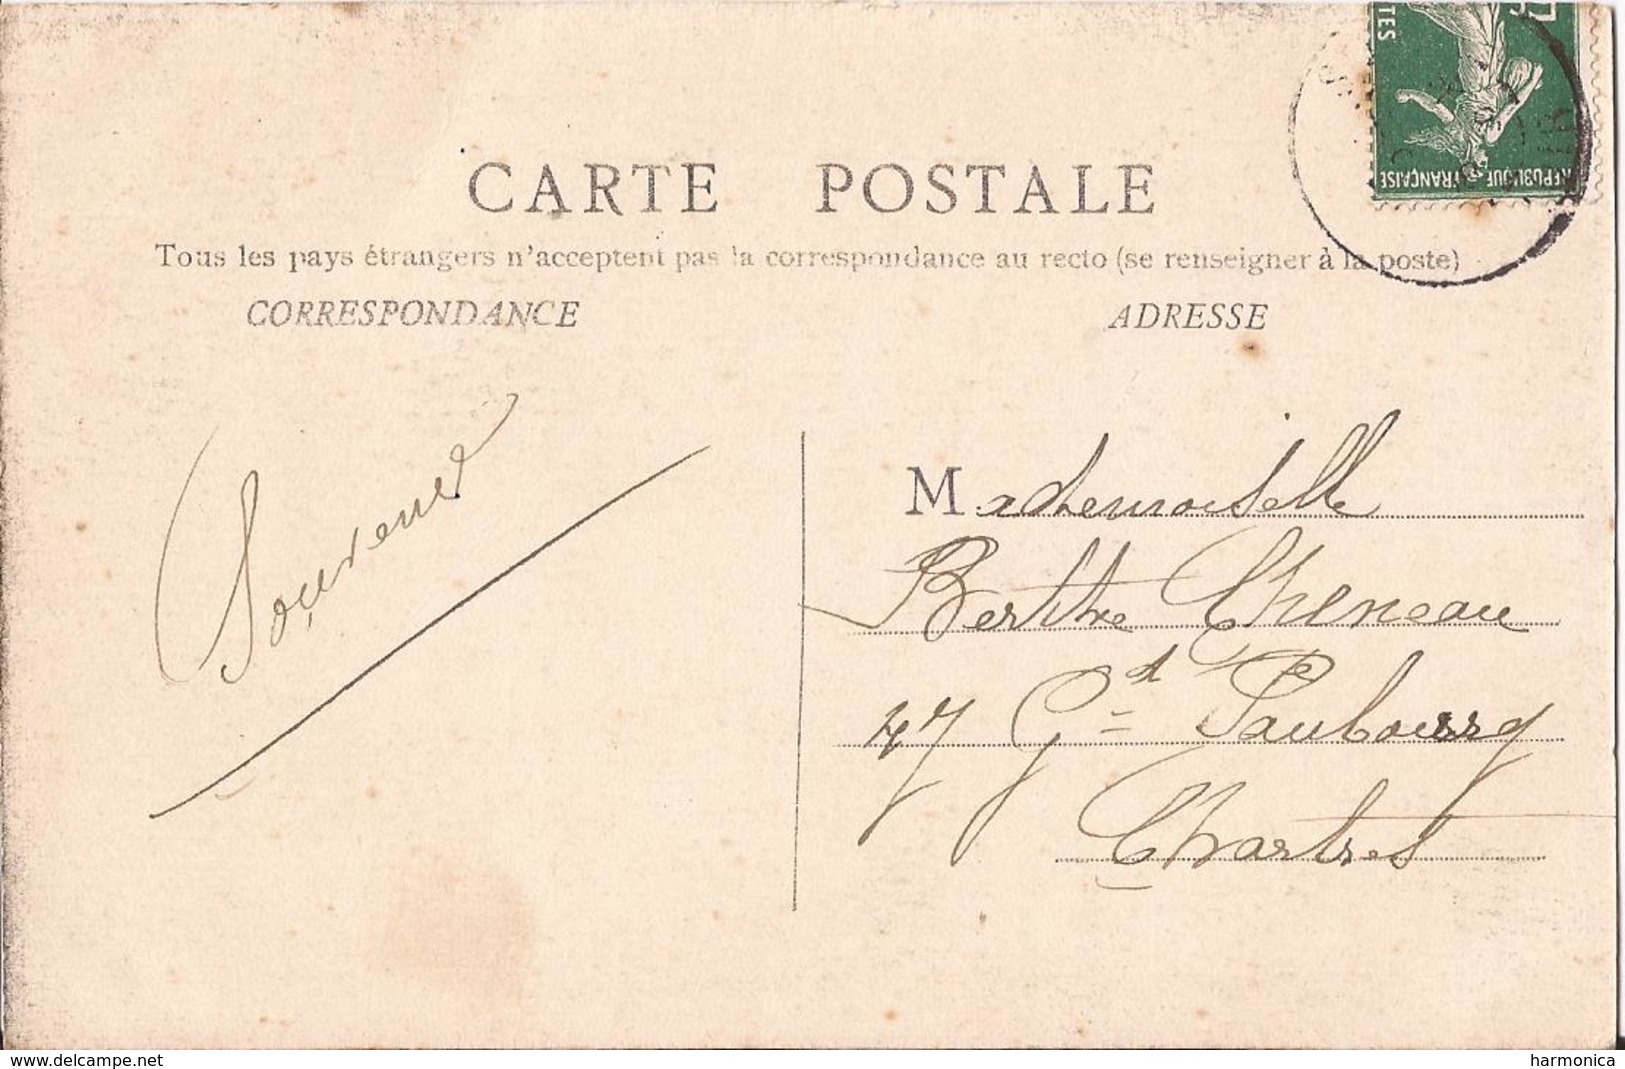 CARTE POSTALE
Tous les pays étrangers n'acceptent pas la correspondance au recto (se renseigner à la poste)
CORRESPONDANCE
ADRESSE
TES
RÉPUBLIQUE FRANÇAISE
Souvenir
Mademoiselle
Berthe Cheneau
47 Gd Faubourg
Chartres
www.delcampe.net
harmonica